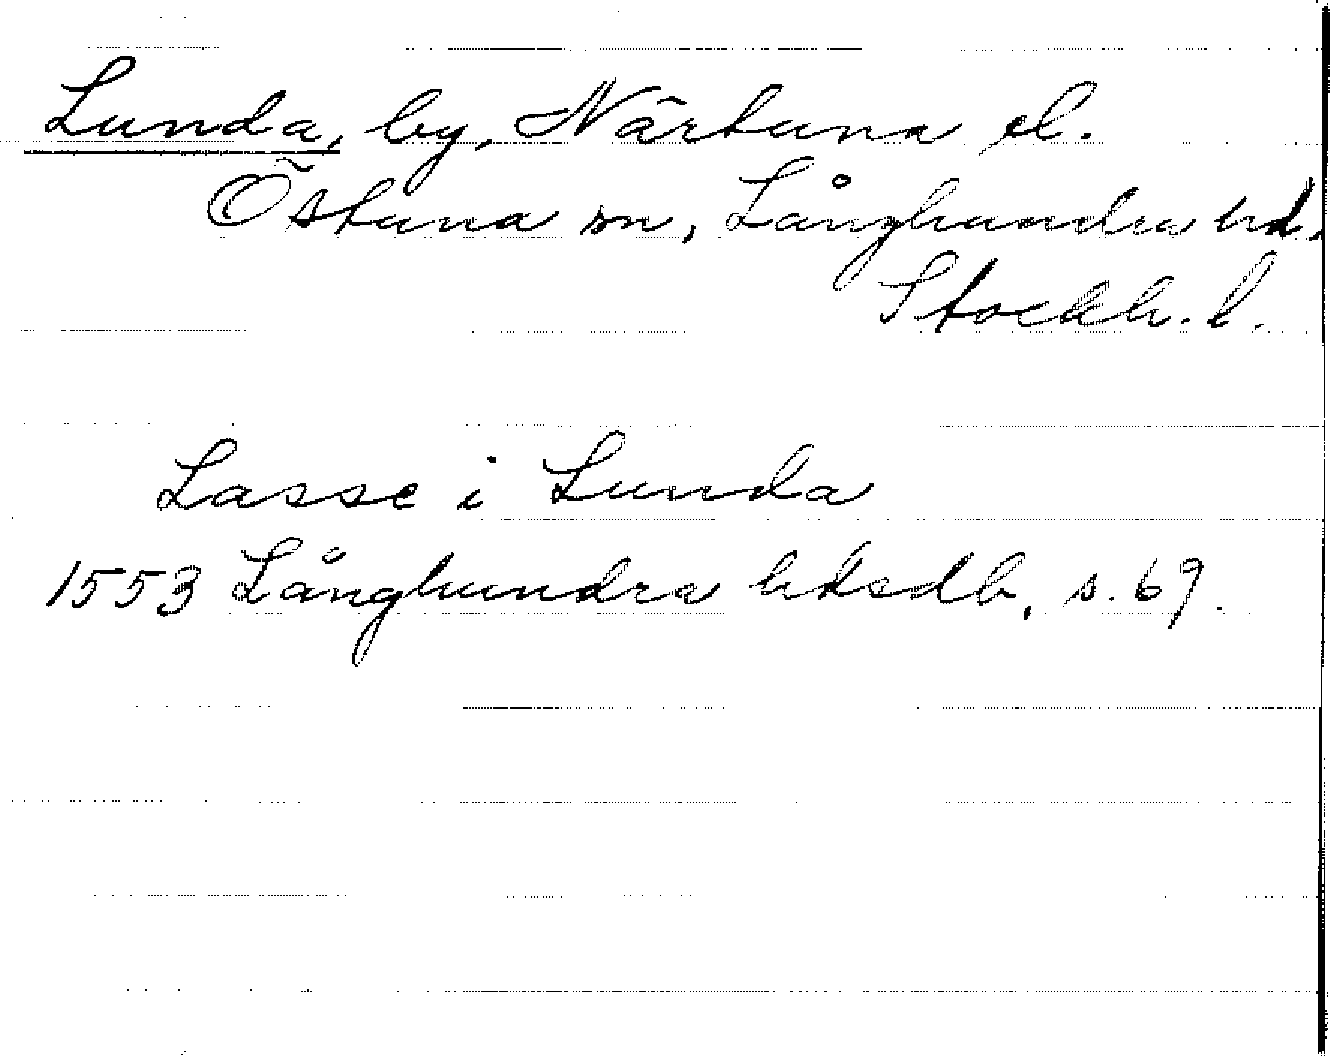 Lunda, by, Närtuna el.
Östuna sn, Långhundra hd,
Stockh. l.
Lasse i Lunda
1553 Långhundra hdsdb, s. 69.